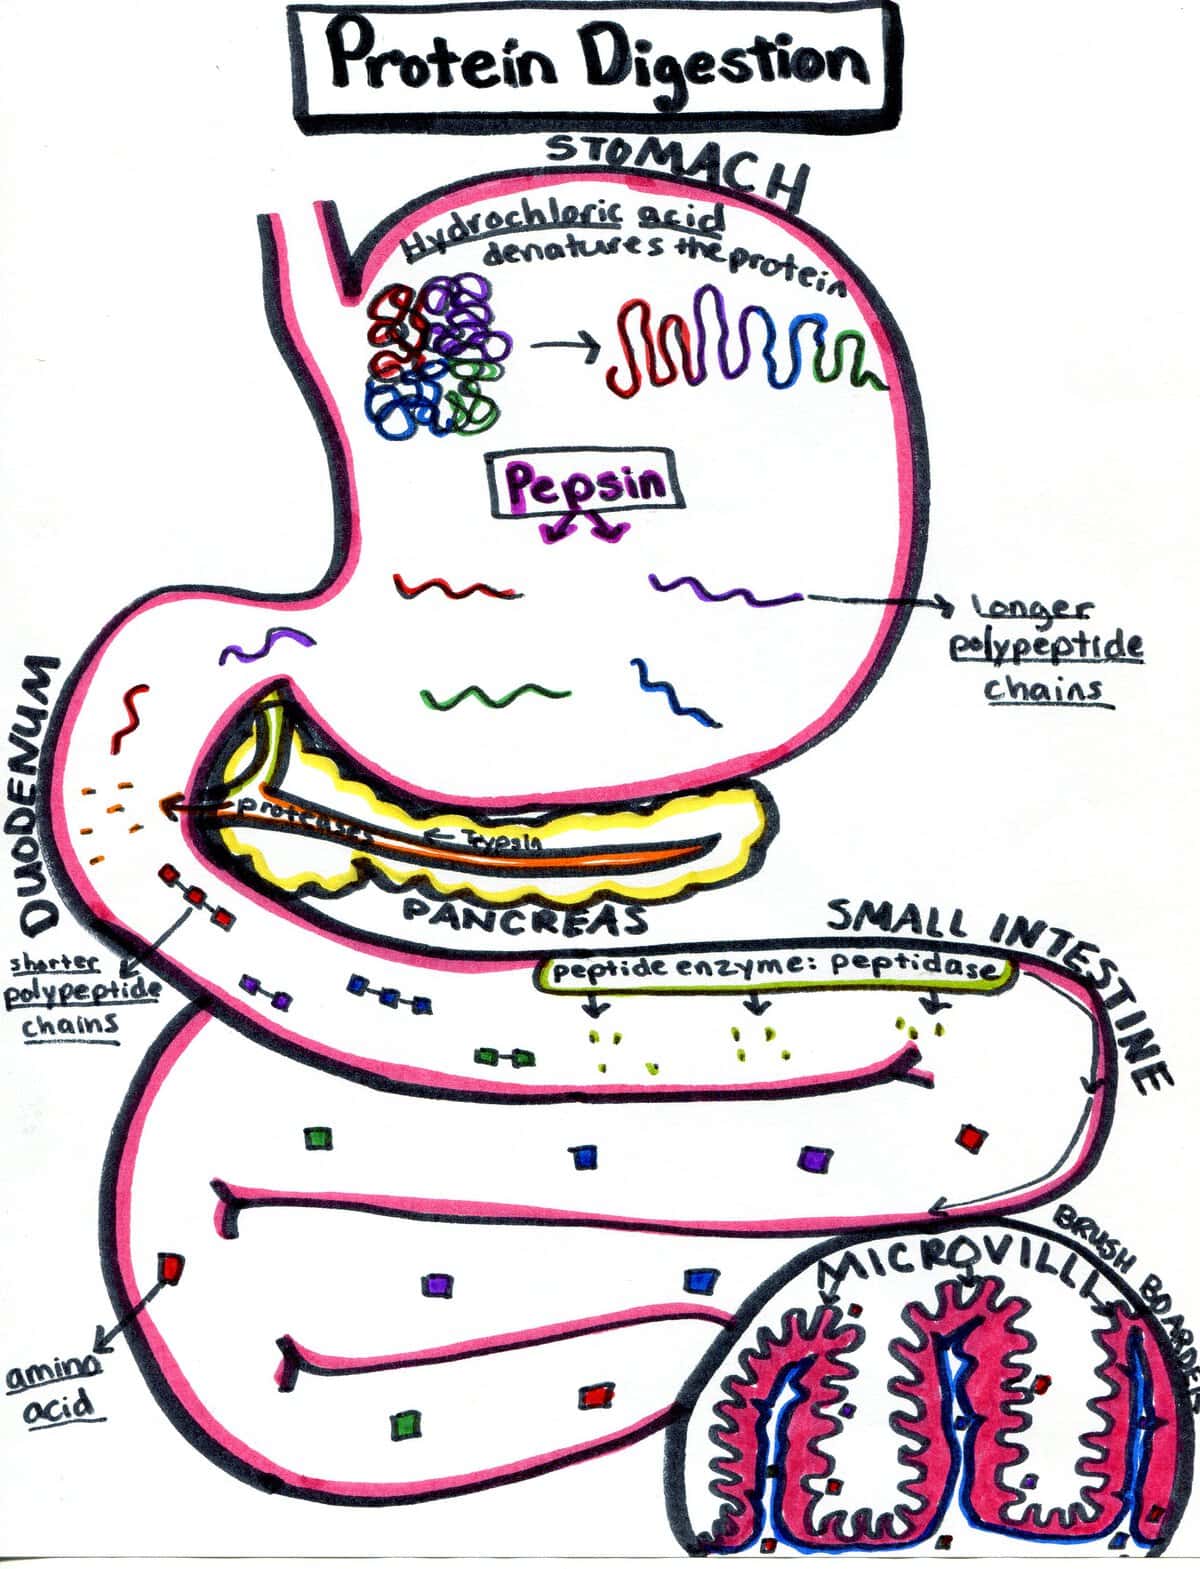 Protein Digestion
STOMACH
Hydrochloric acid
denatures the protein
Pepsin
Longer
polypeptide
chains
DUODENUM
proteases
← Trypsin
PANCREAS
SMALL INTESTINE
shorter
polypeptide
chains
peptide enzyme: peptidase
amino
acid
MICROVILLI
BRUSH BOARDER